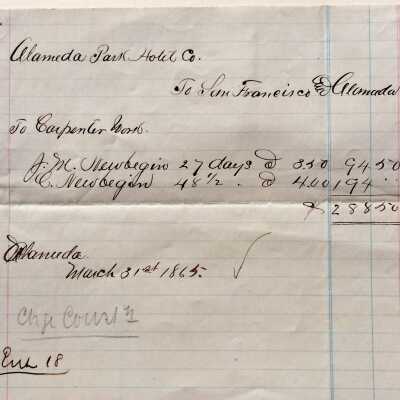 Alameda Park Hotel Co.
To San Francisco & Alameda
To Carpenter Work.
J. M. Newbegin 27 days @ 3.50 94 50
C. Newbegin 48 1/2 . @ 4.00 194 . .
$ 288 50
Alameda
March 31st 1865.
Chge Const
18